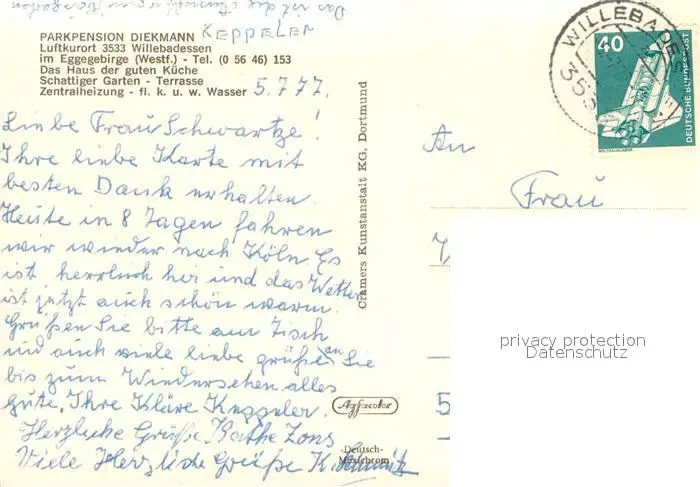 KEPPELER
PARKPENSION DIEKMANN
Luftkurort 3533 Willebadessen
im Eggegebirge (Westf.) - Tel. (0 56 46) 153
Das Haus der guten Küche
Schattiger Garten - Terrasse
Zentralheizung - fl. k. u. w. Wasser
5.7.77.
Liebe Frau Schwartze!
Ihre liebe Karte mit
besten Dank erhalten.
Heute in 8 Tagen fahren
wir wieder nach Köln. Es
ist herrlich hier und das Wetter
ist jetzt auch schön warm.
Grüßen Sie bitte am Tisch
und auch viele liebe grüße an Sie
bis zum Wiedersehen alles
gute. Ihre Kläre Keppeler.
Herzliche Grüße Käthe Zons
Viele Herzliche Grüße K. Schmitz
Cramers Kunstanstalt KG, Dortmund
Agfacolor
Deutsch-
WILLEBADES
40
DEUTSCHE BUNDESPOST
WELTRAUMLABOR
An
Frau
5
privacy protection
Datenschutz